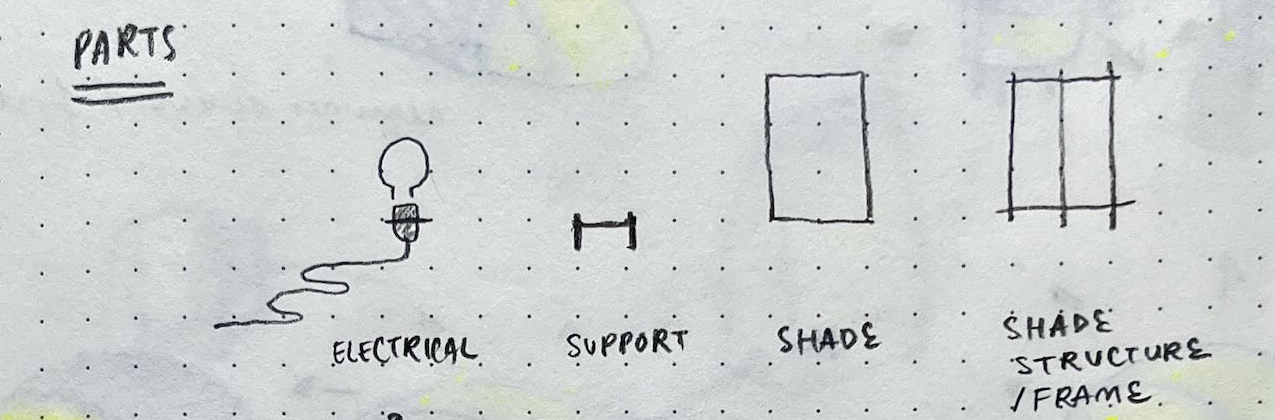 PARTS
ELECTRICAL
SUPPORT
SHADE
SHADE
STRUCTURE
/FRAME.